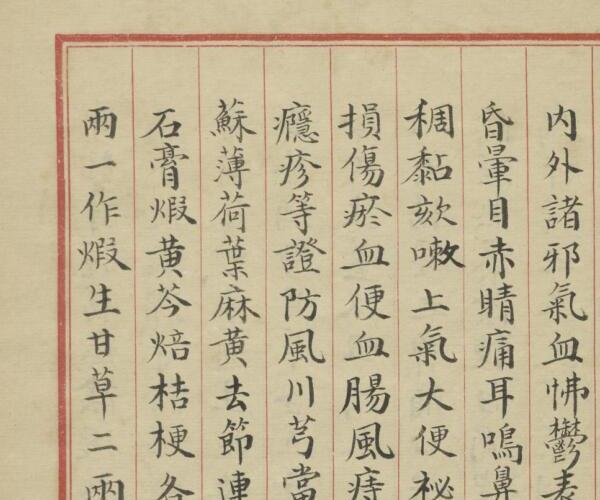 内外諸邪氣血怫鬱表
昏暈目赤睛痛耳鳴鼻
稠黏欬嗽上氣大便祕
損傷瘀血便血腸風痔
癮疹等證防風川芎當
蘇薄荷葉麻黄去節連
石膏煆黄芩焙桔梗各
兩一作煆生甘草二兩